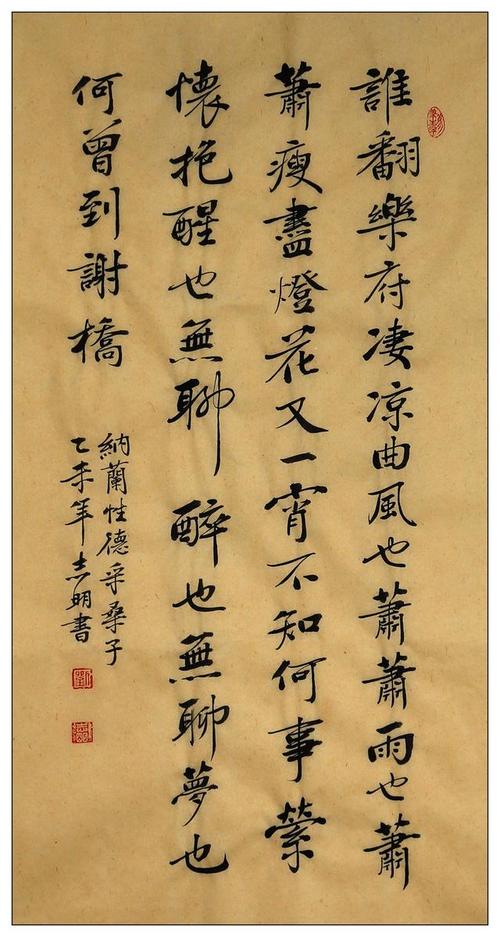 誰翻樂府淒涼曲風也蕭蕭雨也蕭
蕭瘦盡燈花又一宵不知何事縈
懷抱醒也無聊醉也無聊夢也
何曾到謝橋
納蘭性德采桑子
乙未年志明書